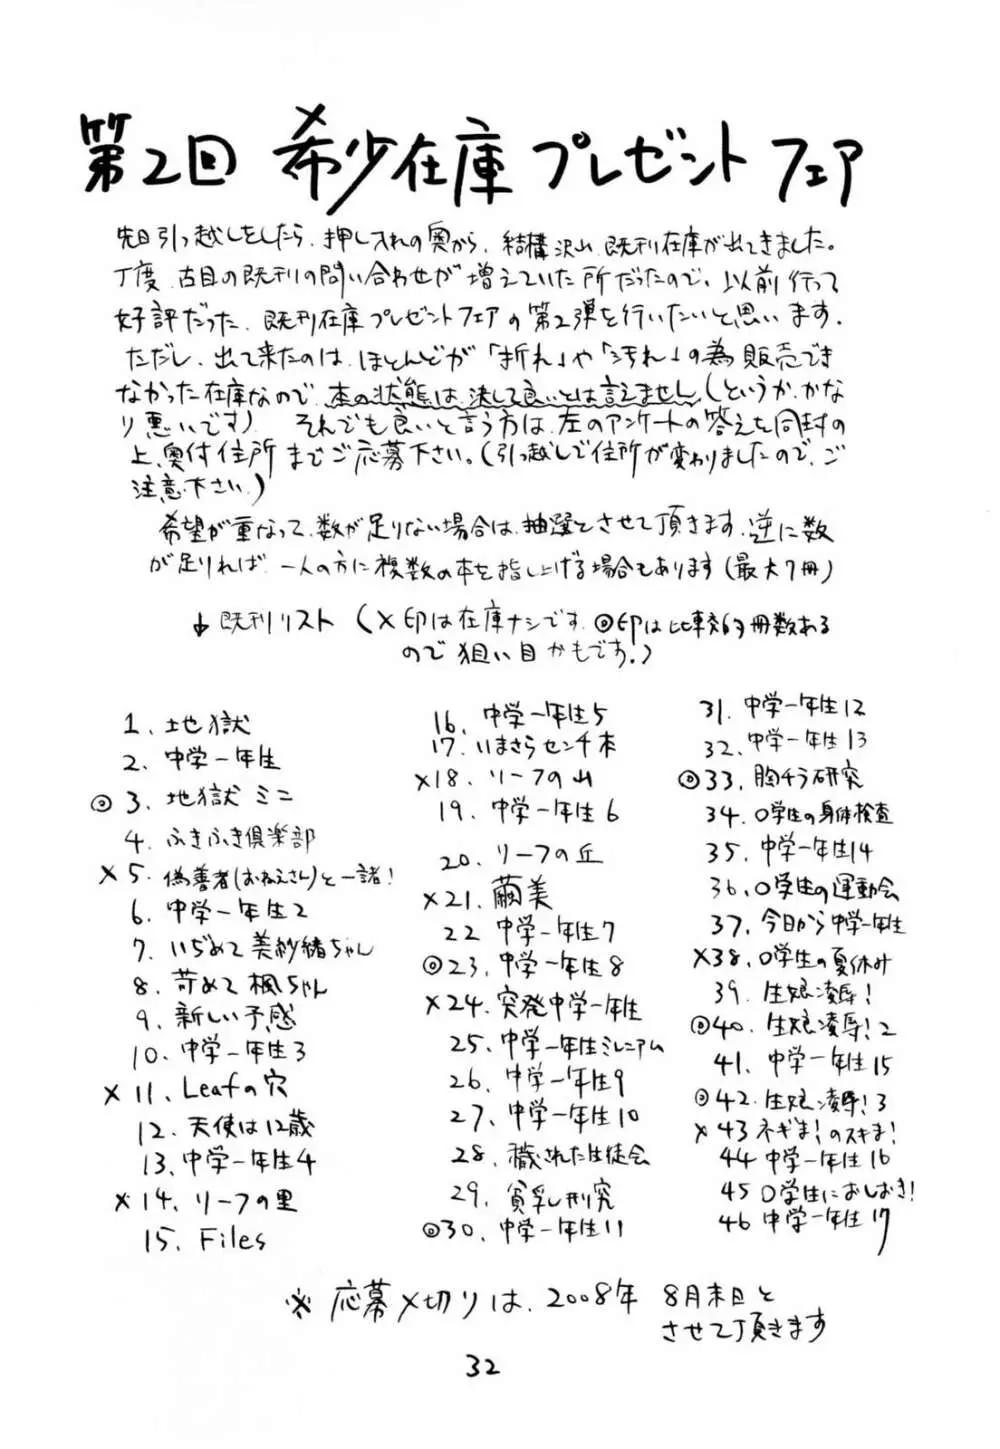 第2回 希少在庫 プレゼント フェア
先日引っ越しをしたら、押し入れの奥から、結構沢山 既刊在庫が出てきました。
丁度、古目の既刊の問い合わせが 増えていた所だったので、以前行って
好評だった、既刊在庫プレゼントフェアの第2弾を行いたいと思います。
ただし、出て来たのは、ほとんどが「折れ」や「汚れ」の為 販売でき
なかった在庫なので、本の状態は、決して良いとは言えません(というか、かな
り悪いです)。それでも良いと言う方は、左のアンケートの答えを同封の
上、奥付住所までご応募下さい。(引っ越しで住所が変わりましたので、ご
注意下さい。)
希望が重なって、数が足りない場合は、抽選とさせて頂きます。逆に数
が足りれば、一人の方に複数の本を差し上げる場合もあります(最大7冊)
↓既刊リスト (×印は在庫ナシです。◎印は比較的冊数ある
ので狙い目かもです。)
1、地獄
2、中学一年生
◎3、地獄ミニ
4、ふきふき倶楽部
×5、偽善者(おねえさん)と一諸!
6、中学一年生2
7、いぢめて美紗緒ちゃん
8、苛めて楓ちゃん
9、新しい予感
10、中学一年生3
×11、Leafの穴
12、天使は12歳
13、中学一年生4
×14、リーフの里
15、Files
16、中学一年生5
17、いまさらセンチ本
×18、リーフの山
19、中学一年生6
20、リーフの丘
×21、繭美
22 中学一年生7
◎23、中学一年生8
×24、突発中学一年生
25、中学一年生ミレニアム
26、中学一年生9
27、中学一年生10
28、穢された生徒会
29、貧乳し刑究
◎30、中学一年生11
31、中学一年生12
32、中学一年生13
◎33、胸チラ研究
34、○学生の身体検査
35、中学一年生14
36、○学生の運動会
37、今日から中学一年生
×38、○学生の夏休み
39、生娘凌辱!
◎40、生娘凌辱!2
41、中学一年生15
◎42、生娘凌辱!3
×43 ネギま!のスキま!
44 中学一年生16
45 ○学生におしおき!
46 中学一年生17
※ 応募〆切りは、2008年 8月末日と
させて頂きます
32